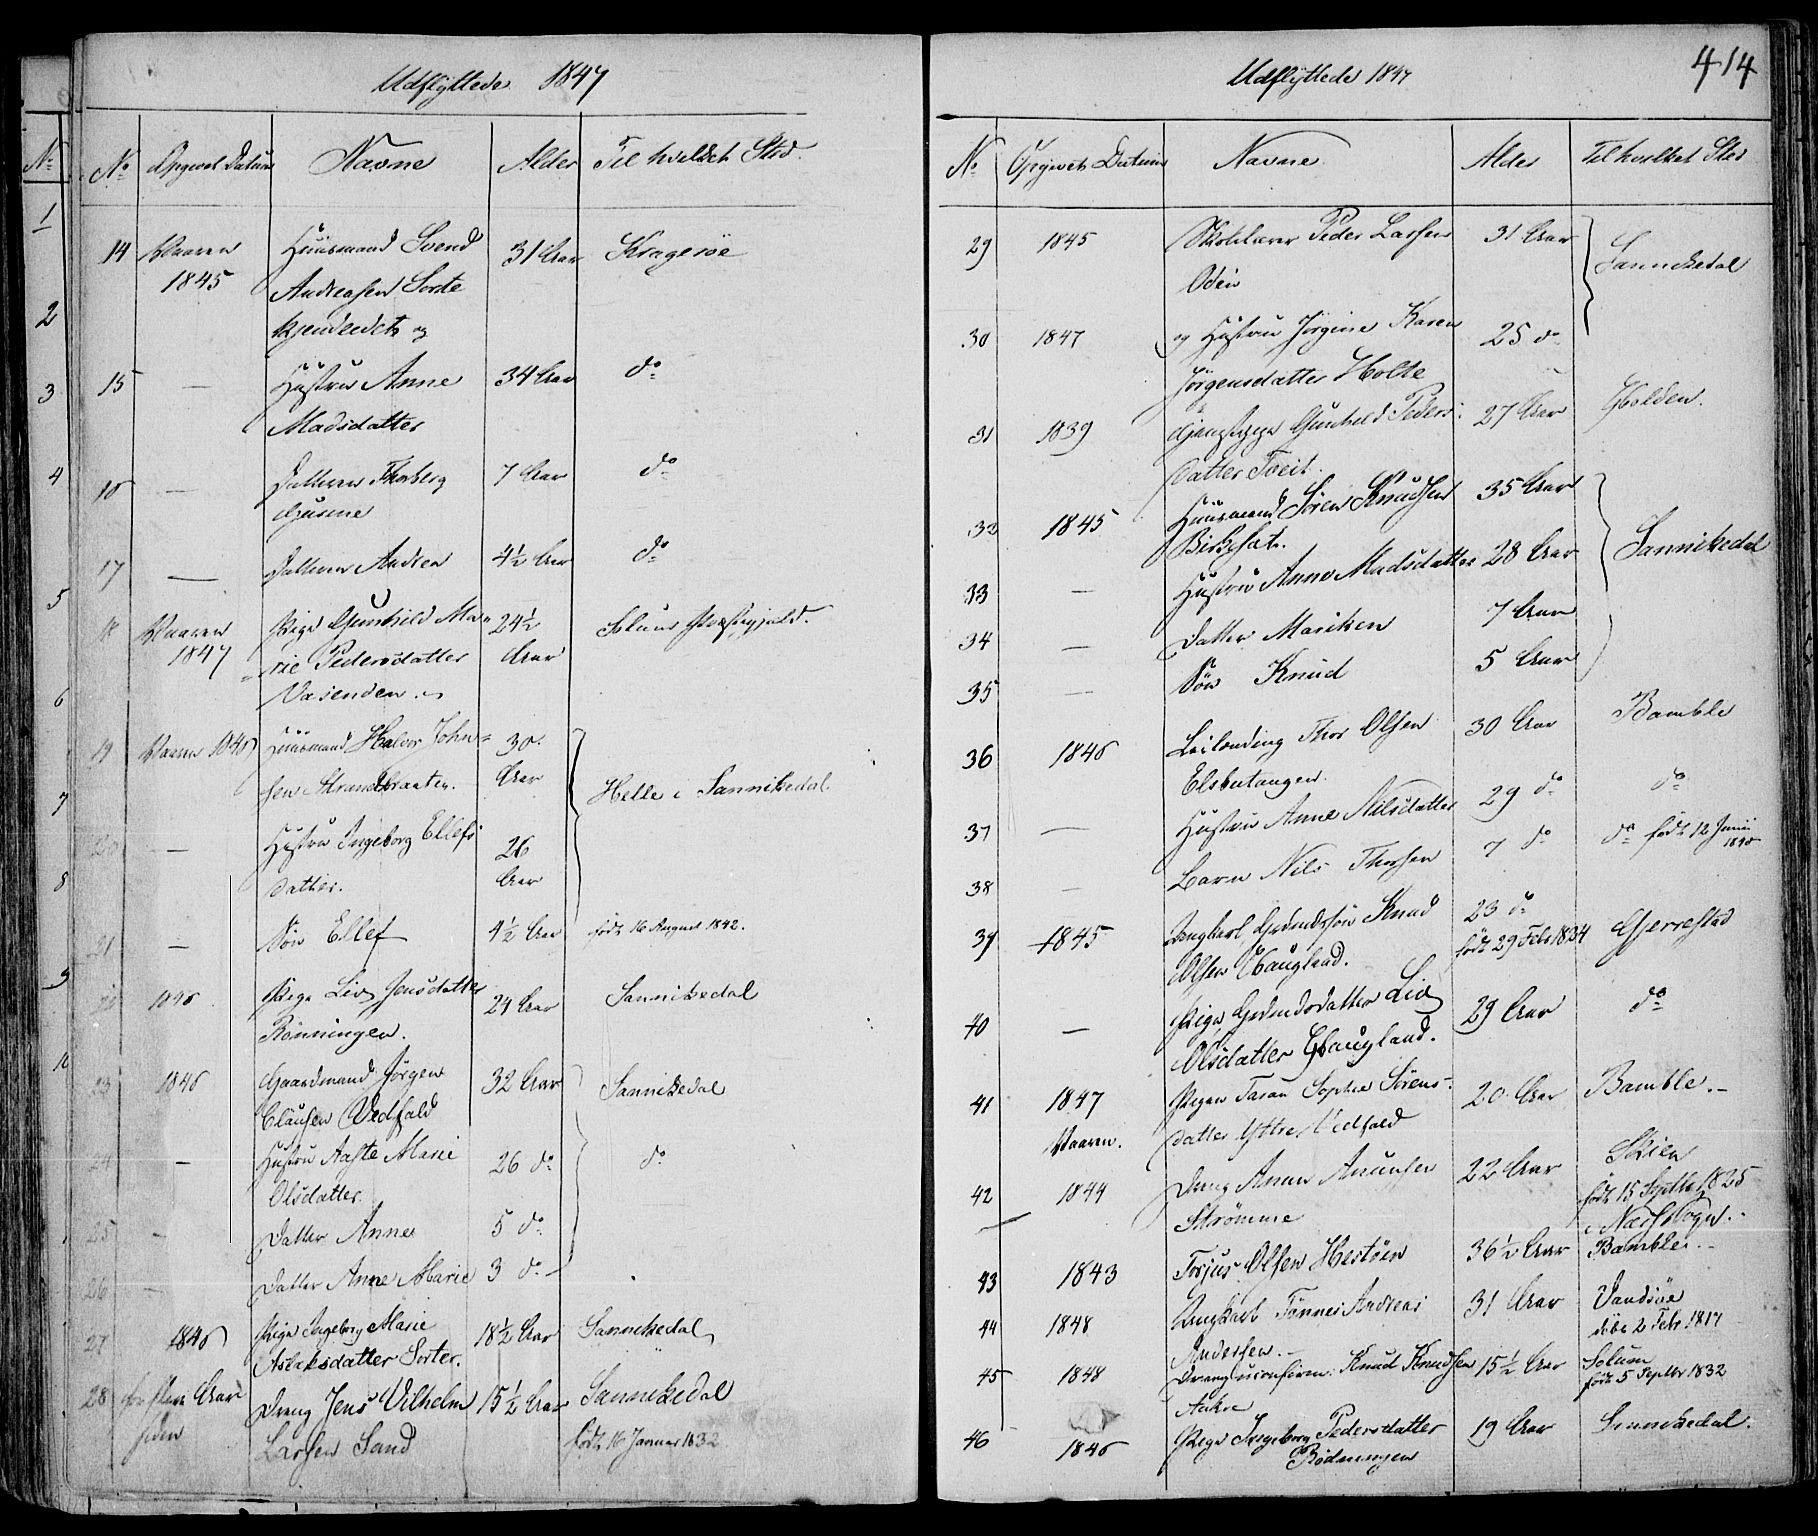 Udflyttede 1847
No Opgivet Datum Navne Alder Til hvilket Sted.
14 Vaaren 1845 Huusmand Svend 31 Aar Kragerøe
Andreasen Sorte
kjendledet og
15 — Hustru Anne 34 Aar do
Madsdatter
16 — Datteren Thorberg 7 Aar do
Gusine
17 — Datteren Andrea 4½ Aar do
18 Vaaren 1847 Pige Gunhild Ma- 24½ Aar Solums Præstegjeld.
rie Pedersdatter
Vasenden
19 Vaaren 1846 Huusmand Halvor John- 30 Aar Helle i Sannikedal
sen Strandbraaten.
20 — Hustru Ingeborg Ellefs 26 Aar
datter.
21 — Søn Ellef 4½ Aar født 16 August 1842.
22 1846 Pige Liv Jensdatter 24 Aar Sannikedal
Rønningen.
23 1846 Gaardmand Jørgen 32 Aar Sannikedal
Clausen Vedfald
24 — Hustru Aaste Marie 26 do do
Olsdatter
25 — Datter Anne 5 do
26 — Datter Anne Marie 3 do
27 1846 Pige Ingeborg Marie 18½ Aar Sannikedal
Aslaksdatter Sorter.
28 for flere Aar siden Dreng Jens Vilhelm 15½ Aar Sannikedal
Larsen Sand født 16 Januar 1832
No
1
2
3
4
5
6
7
8
9
10
Udflyttede 1847
414
No Opgivet Datum Navne Alder Til hvilket Sted
29 1845 Skolelærer Peder Larsen 31 Aar Sannikedal
Odin
30 1847 og Hustru Jørgine Karen 25 do
Jørgensdatter Holte
31 1839 Gunhild Peders 27 Aar Holden.
datter Tveit.
32 1845 Huusmand Søren Knudsen 35 Aar Sannikedal
Birkesat.
33 — Hustru Anne Madsdatter 28 Aar
34 — Datter Mariken 7 Aar
35 — Søn Knud 5 Aar
36 1846 Leilænding Thor Olsen 30 Aar Bamble
Elsbutangen.
37 — Hustru Anne Nilsdatter 29 do do
38 — Barn Nils Thorsen 7 do do født 12 Junii 1840
39 1845 Ungkarl Knud 23 do Gjerrestad
Olsen Haugland. født 29 Feb 1824
40 — Pige Liv 29 Aar do
Olsdatter Haugland.
41 1847 Vaaren. Pigen Taran Sophie Sørens- 20 Aar Bamble.
datter Yttre Vedfald
42 1844 Dreng Anun Anunsen 22 Aar Skien
Strømme født 15 Septbr 1825
i Næs Sogn.
43 1843 Torjus Olsen Hestøen 36½ Aar Bamble.
44 1848 Ungkarl Tønnes Andreas 31 Aar Vandsøe
Andersen. døbt 2 Febr. 1817
45 1848 Dreng uconfirm. Knud Knudsen 15½ Aar Solum
Aakre født 5 Septbr 1832
46 1846 Pige Ingeborg Pedersdatter 19 Aar Sannikedal.
Rødmungen